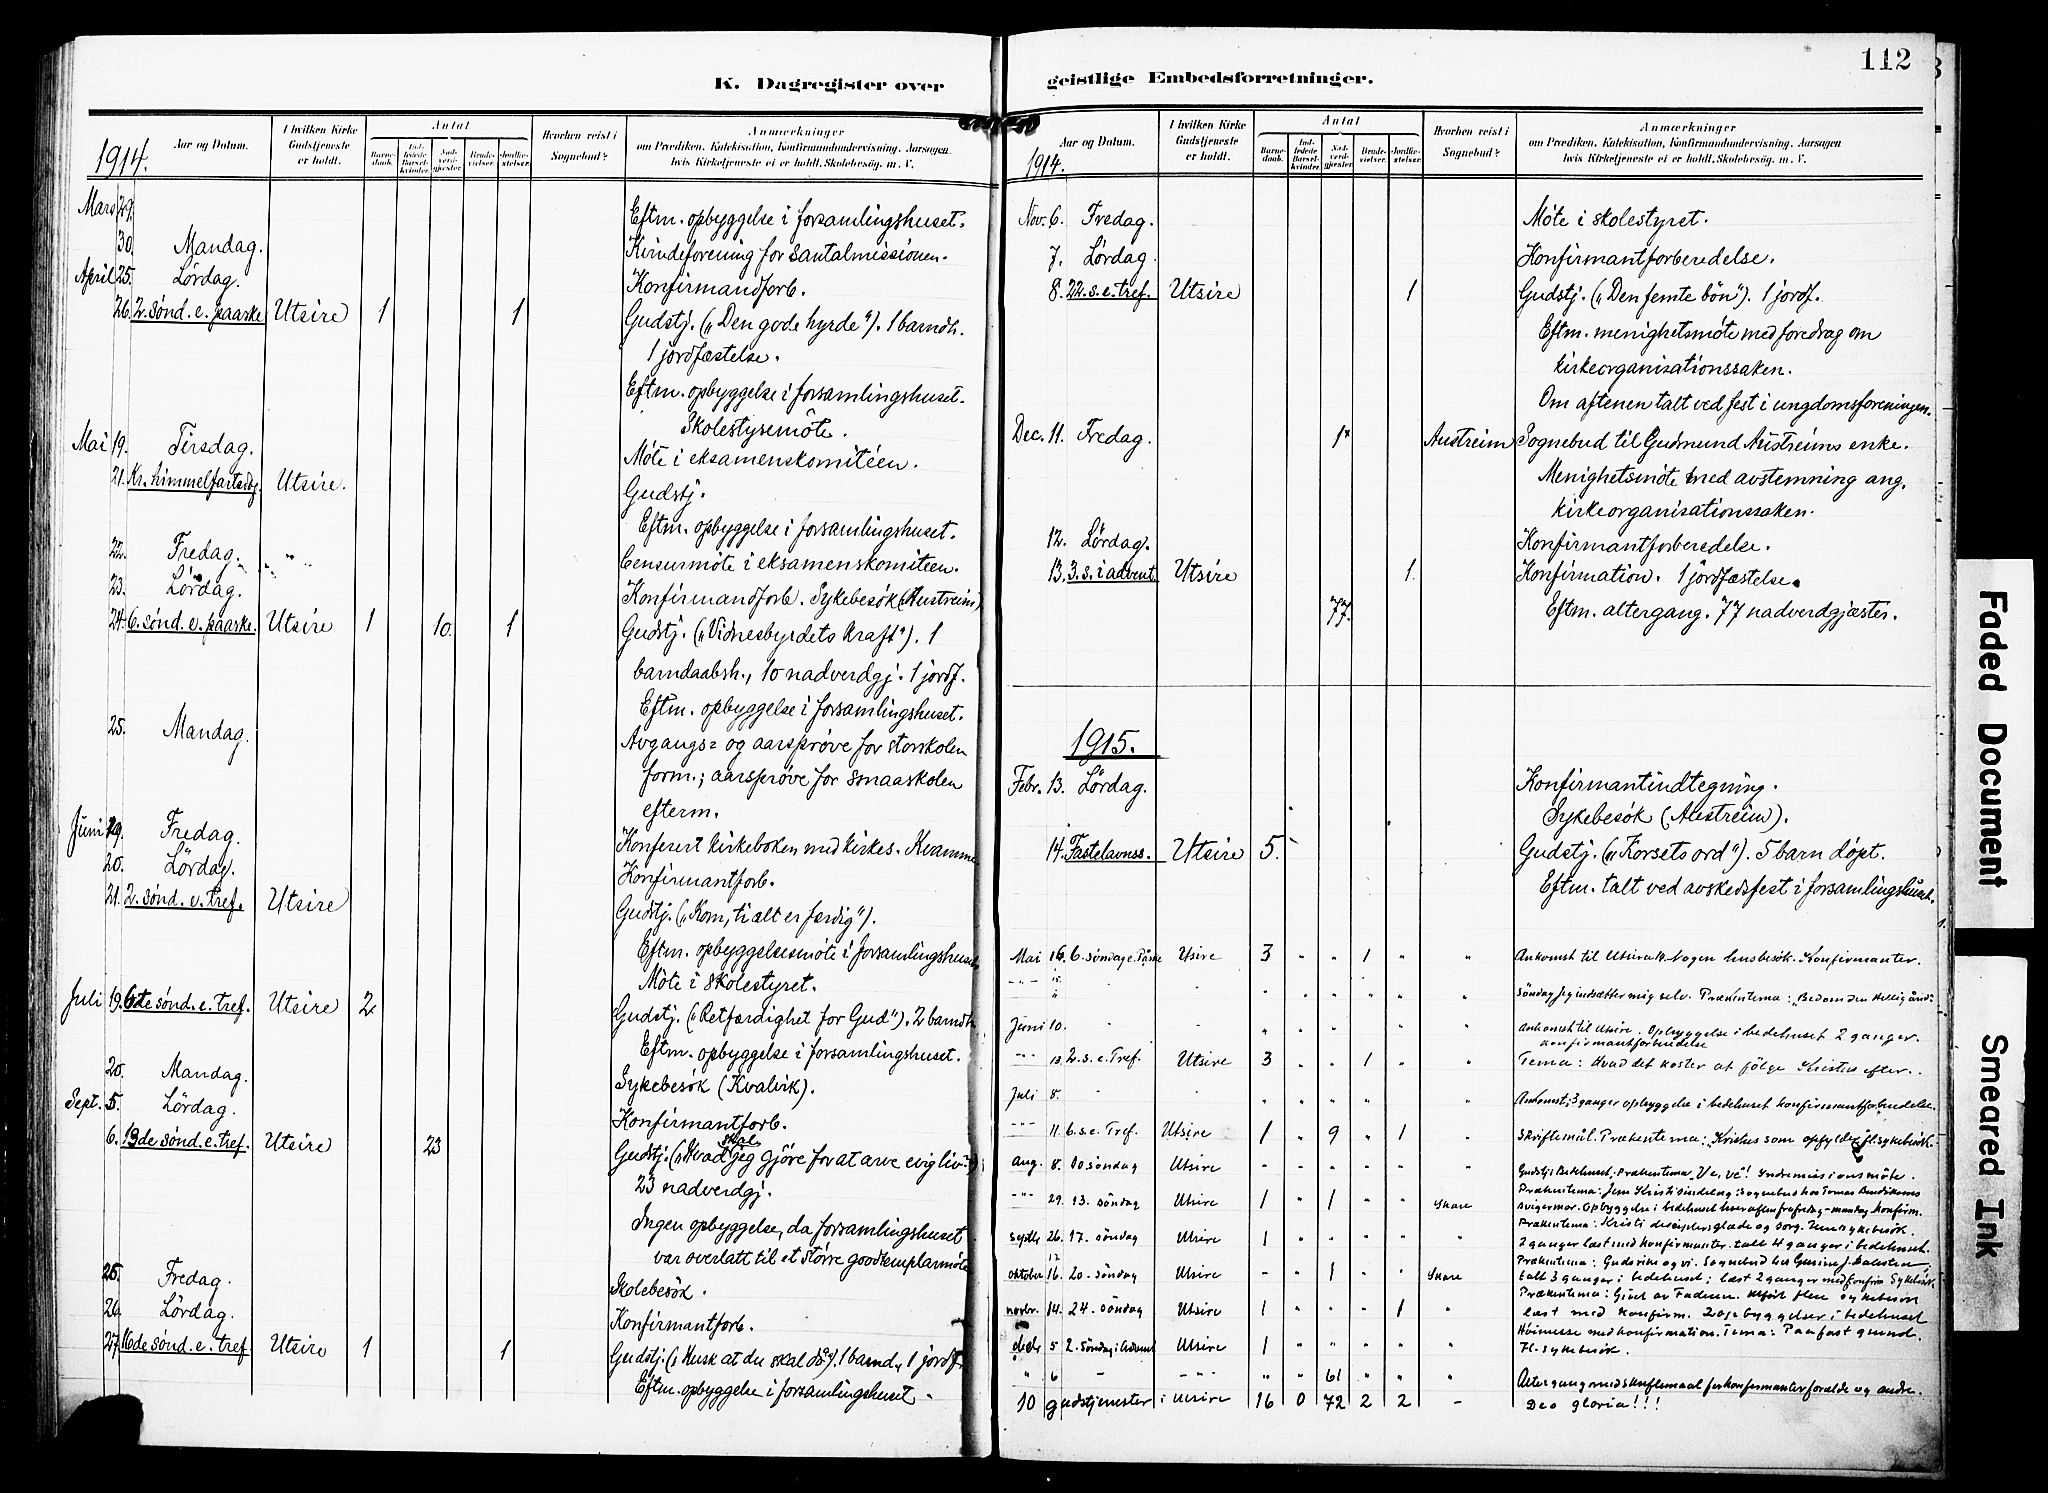 K. Dagregister over
1914.
Aar og Datum.
I hvilken Kirke Gudstjeneste er holdt.
Antal
Barnedaab.
Indledede Barselkvinder.
Nadverdgjester.
Brudevielser.
Jordfæstelser.
Hvorhen reist i Sognebud?
Anmærkninger
om Prædiken. Katekisation, Konfirmandundervisning. Aarsagen
hvis Kirketjeneste ei er holdt. Skolebesøg. m. V.
Mars 29. Eftm. opbyggelse i forsamlingshuset.
30. Mandag. Kvindeforening for Santalmissionen.
April 25. Lördag. Konfirmandforb.
26. 2. sønd. e. paaske Utsire 1 1 Gudstj. („Den gode hyrde"). 1 barndh.
1 jordfæstelse.
Eftm. opbyggelse i forsamlingshuset.
Skolestyremöte.
Mai 19. Tirsdag. Möte i eksamenskomitéen.
21. Kr. himmelfartsdag. Utsire. Gudstj.
Eftm. opbyggelse i forsamlingshuset.
22. Fredag. „ „ Censurmöte i eksamenskomitéen.
23. Lördag. Konfirmandforb. Sykebesök (Austreim)
24. 6. sønd. e. paaske. Utsire 1 10. 1 Gudstj. („Vidnesbyrdets kraft"). 1
barndaabsh., 10 nadverdgj. 1 jordf.
Eftm. opbyggelse i forsamlingshuset.
25. Mandag. Avgangs= og aarsprøve for storskolen
form.; aarsprøve for smaaskolen
efterm.
Juni 19. Fredag. Konferert kirkeboken med kirkes. Kvamme
20. Lördag. Konfirmantforb.
21. 2. sønd. e. tref. Utsire Gudstj. („Kom, ti alt er færdig").
Eftm. opbyggelsesmöte i forsamlingshuset
Möte i skolestyret.
Juli 19. 6te sønd. e. tref. Utsire 2 Gudstj. („Retfærdighet for Gud"). 2 barndh.
Eftm. opbyggelse i forsamlingshuset.
20. Mandag. Sykebesök (Kvalvik).
Sept. 5. Lördag. Konfirmantforb.
6. 13de sønd. e. tref. Utsire 23 Gudstj. („Hvad skal jeg gjöre for at arve evig liv")
23 nadverdgj.
Ingen opbyggelse, da forsamlingshuset
var overlatt til et större goodtemplarmöte
25. Fredag. Skolebesök.
26. Lördag. Konfirmantforb.
27. 16de sønd. e. tref. Utsire 1 1 Gudstj. („Husk at du skal dø"). 1 barnd., 1 jordf.
Eftm. opbyggelse i forsamlingshuset.
geistlige Embedsforretninger.
112
1914.
Aar og Datum.
I hvilken Kirke Gudstjeneste er holdt.
Antal
Barnedaab.
Indledede Barselkvinder.
Nadverdgjester.
Brudevielser.
Jordfæstelser.
Hvorhen reist i Sognebud?
Anmærkninger
om Prædiken. Katekisation, Konfirmandundervisning. Aarsagen
hvis Kirketjeneste ei er holdt. Skolebesög. m. V.
Nov. 6. Fredag. Möte i skolestyret.
7. Lördag. Konfirmantforberedelse.
8. 22. s. e. tref. Utsire 1 Gudstj. („Den femte bön"). 1 jordf.
Eftm. menighetsmöte med foredrag om
kirkeorganisationssaken.
Om aftenen talt ved fest i ungdomsforeningen.
Dec. 11. Fredag. 1* Austreim Sognebud til Gudmund Austreims enke.
Menighetsmöte med avstemning ang.
kirkeorganisationssaken.
12. Lördag. Konfirmantforberedelse.
13. 3. s. i advent. Utsire 1. Konfirmation. 1 jordfæstelse.
77. Eftm. altergang. 77 nadverdgjæster.
1915.
Febr. 13. Lördag. Konfirmantindtegning.
Sykebesök (Austreim).
14. Fastelavnss. Utsire 5. Gudstj. („Korsets ord"). 5 barn döpt.
Eftm. talt ved avskedsfest i forsamlingshuset.
Mai 16. 6. søndag e. Påske Utsire 3 „ „ 1 „ „ Ankomst til Utsira 14. Nogen husbesök. Konfirmanter.
Söndag jeg indsætter mig selv. Prækentema: „Bed om den Hellig ånd"
Juni 10. Ankomst til Utsire. Opbyggelse i bedehuset 2 ganger.
konfirmantforberedelse
13. 2. s. e. Tref. Utsire 3 „ „ 1 „ „ Tema: Hvad det koster at fölge Kristus efter.
Juli 8. Ankomst; 3 ganger opbyggelse i bedehuset konfirmantforberedelse.
11. 6. s. e. Tref. Utsire 1 „ 9 „ 1 „ Skriftemål. Prækentema: Kristus som opfylder fl. sykebesök.
Aug. 8. 10 söndag Utsire Gudstj. i Bedehuset; Prækentema „Ve, ve"! Indremissionsmöte.
29. 13. söndag Utsire 1 „ 1 „ „ Skare Prækentema: Jesu Kristi sindelag: Sognebud hos Tomas
svigermor. Opbyggelse i bedehuset hver aften fra fredag-mandag konfirm.
septbr 26. 17. söndag Utsire 1 Prækentema: Kristi disciplers glæde og sorg. sykebesök.
2 ganger læst med konfirmanter. talt 4 ganger i bedehuset.
oktober 17. 16. 20. söndag Utsire - „ 1 „ „ Skare Prækentema: Guds rike og vi. Sognebud hos
talt 3 ganger i bedehuset; læst 2 ganger med konfirm. Sykebesök.
novbr. 14. 24. söndag Utsire 1 „ „ „ 1 „ Prækentema: Givet av Faderen. flere sykebesök
læst med konfirm. 2 opbyggelser i bedehuset
decbr 5 2. söndag i Advent Utsire 1 Höimesse med konfirmation. Tema: Paa fast grund.
Fl. sykebesök.
„ 6 - - „ - „ „ 61 „ „ „ Altergang med skriftemaal for konfirmanter forældre og andre.
10 gudstjenester i Utsire 16 0 72 2 2 - Deo gloria!!!
Faded Document
Smeared Ink